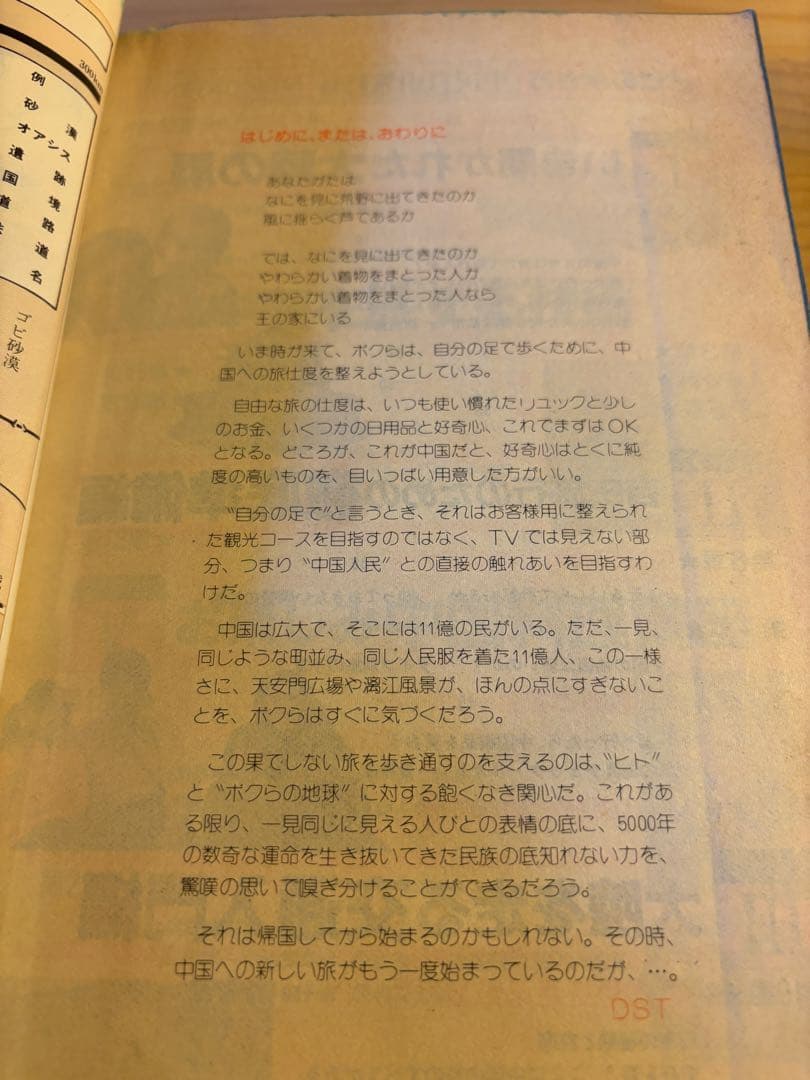 300km
例
砂漠
オアシス
遺跡
国境
道路
道名
ゴビ砂漠
はじめに、または、おわりに
あなたがたは
なにを見に荒野に出てきたのか
風に揺らぐ芦であるか
では、なにを見に出てきたのか
やわらかい着物をまとった人か
やわらかい着物をまとった人なら
王の家にいる
いま時が来て、ボクらは、自分の足で歩くために、中
国への旅仕度を整えようとしている。
自由な旅の仕度は、いつも使い慣れたリュックと少し
のお金、いくつかの日用品と好奇心、これでまずはOK
となる。どころが、これが中国だと、好奇心はとくに純
度の高いものを、目いっぱい用意した方がいい。
〝自分の足で〟と言うとき、それはお客様用に整えられ
た観光コースを目指すのではなく、TVでは見えない部
分、つまり〝中国人民〟との直接の触れあいを目指すわ
けだ。
中国は広大で、そこには11億の民がいる。ただ、一見、
同じような町並み、同じ人民服を着た11億人、この一様
さに、天安門広場や漓江風景が、ほんの点にすぎないこ
とを、ボクらはすぐに気づくだろう。
この果てしない旅を歩き通すのを支えるのは、〝ヒト〟
と〝ボクらの地球〟に対する飽くなき関心だ。これがあ
る限り、一見同じに見える人びとの表情の底に、5000年
の数奇な運命を生き抜いてきた民族の底知れない力を、
驚嘆の思いで嗅ぎ分けることができるだろう。
それは帰国してから始まるのかもしれない。その時、
中国への新しい旅がもう一度始まっているのだが、…。
DST